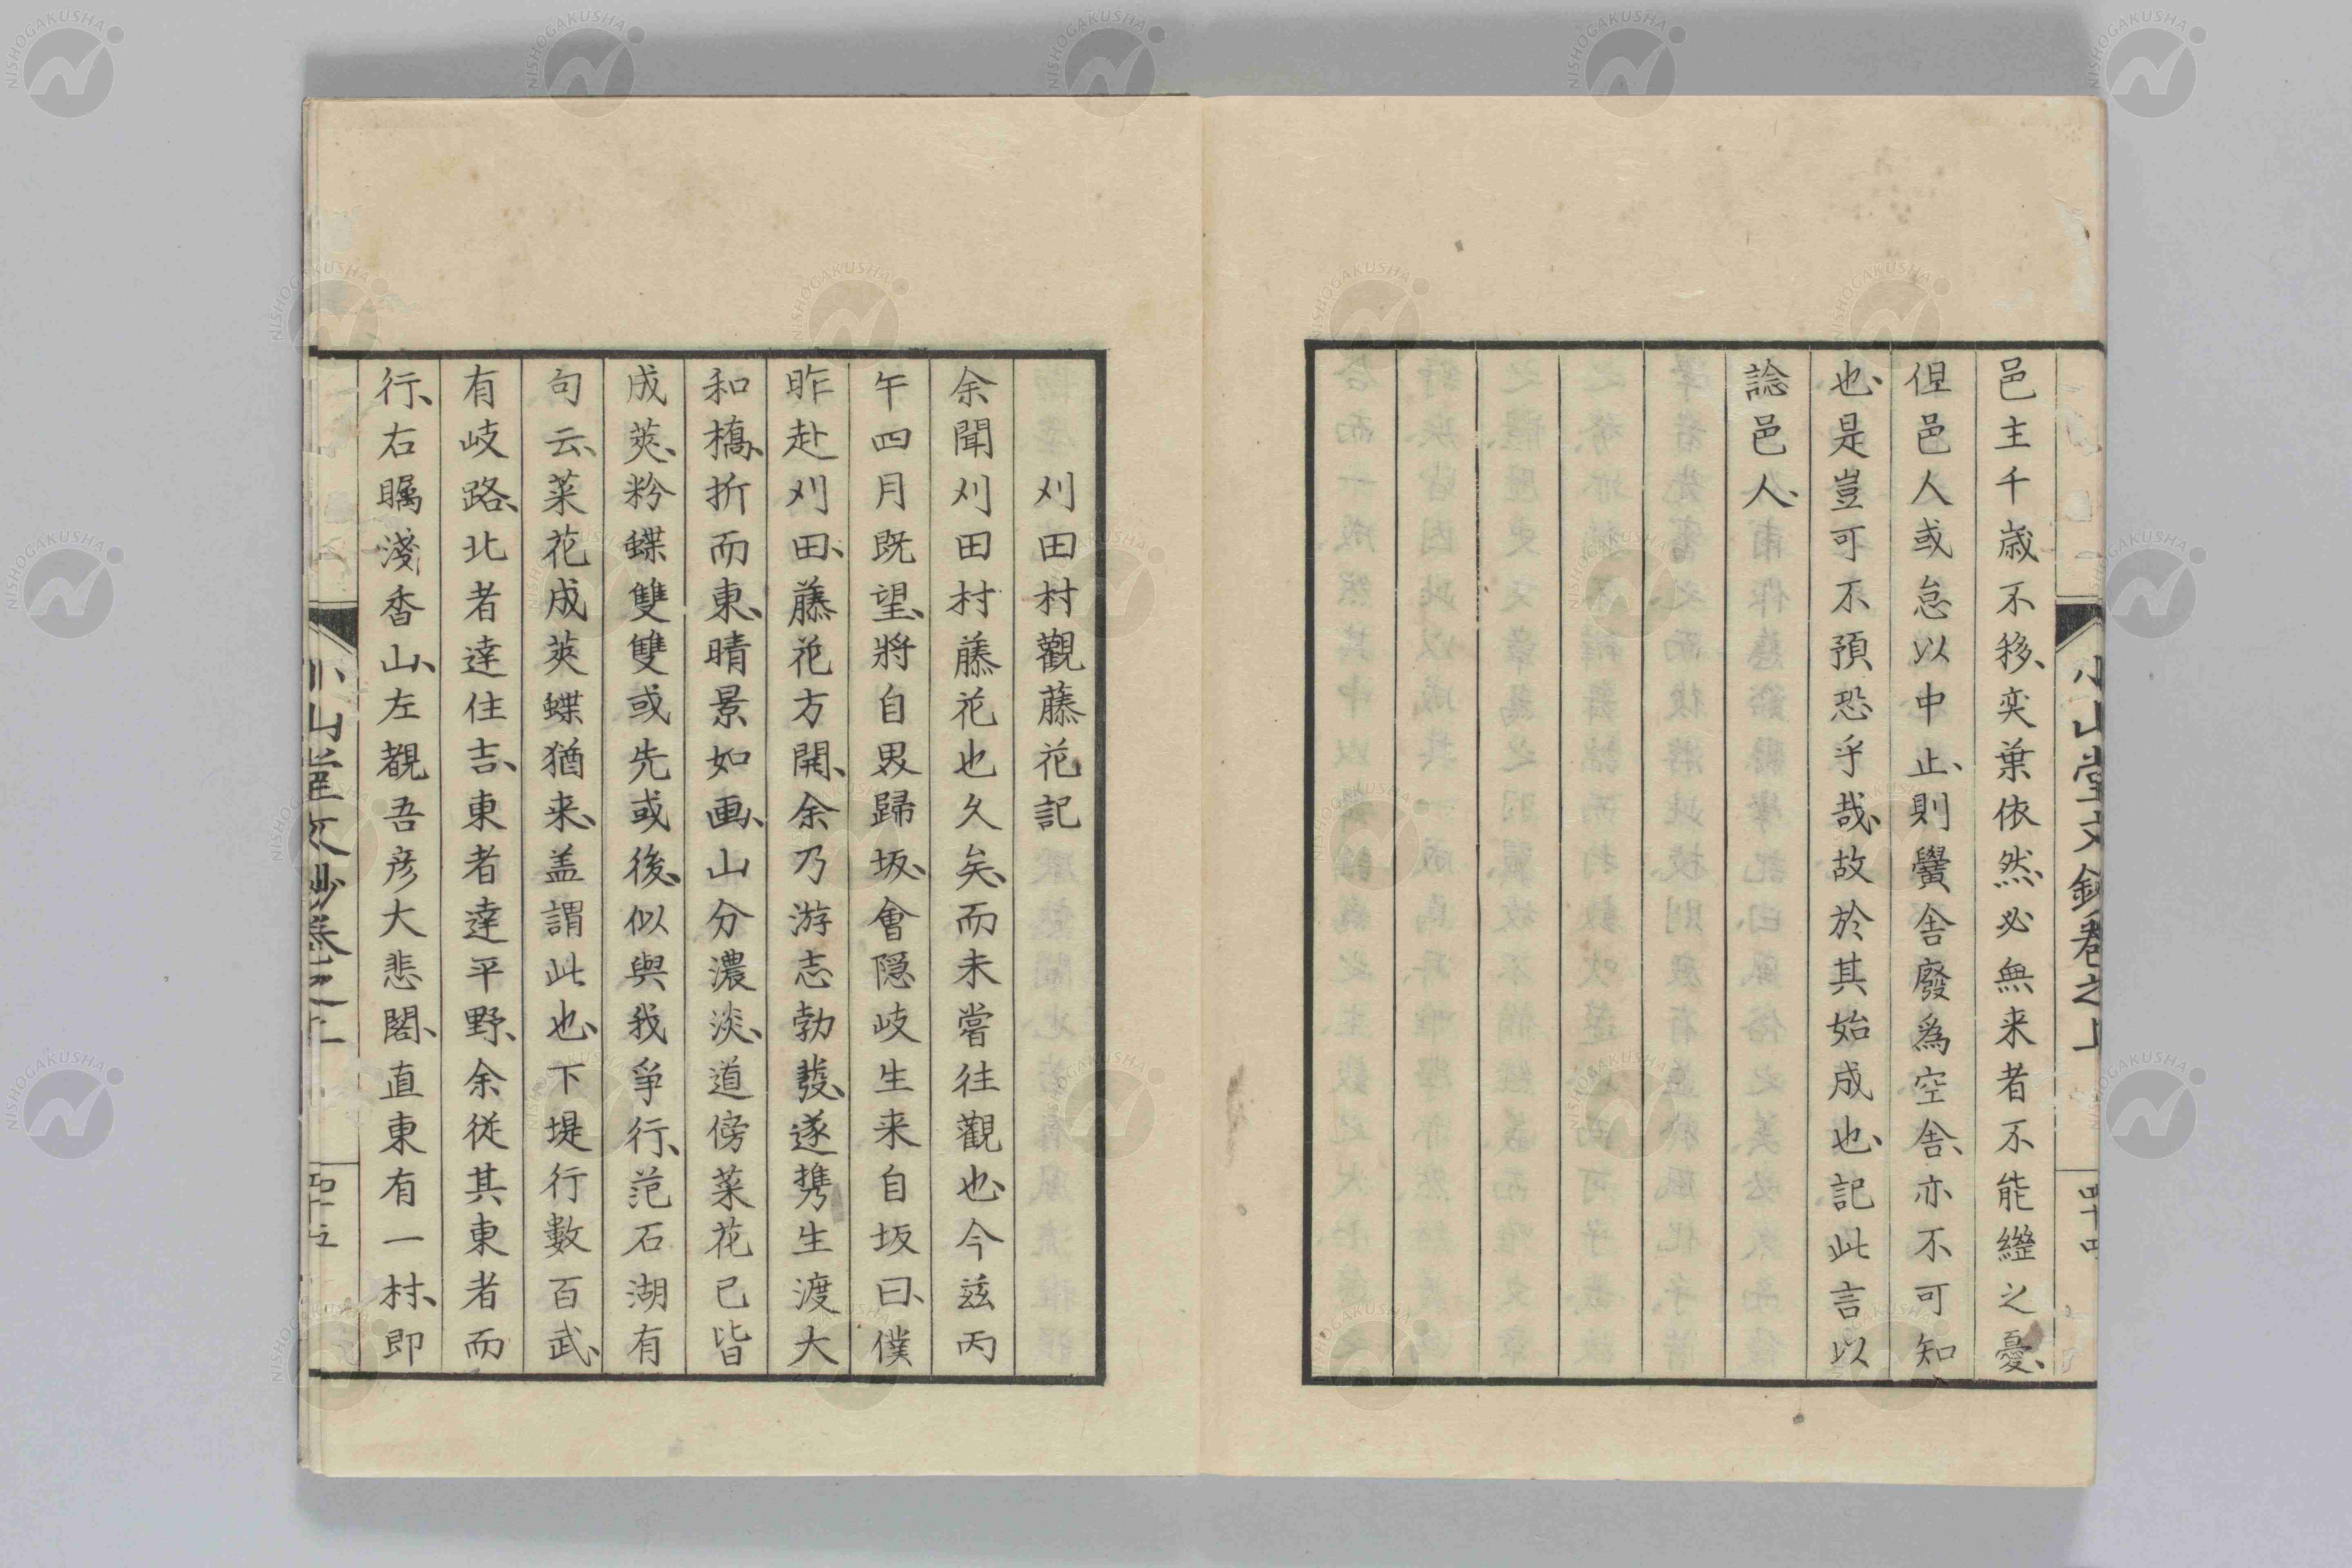 邑主千歳不移、奕葉依然、必無来者不能繼之憂、
但邑人或怠以中止、則黌舎廢為空舎、亦不可知
也、是豈可不預恐乎哉、故於其始成也、記此言以
諗邑人、
小山堂文鈔卷之上
四十四
刈田村觀藤花記
余聞刈田村藤花也久矣、而未嘗往觀也、今茲丙
午四月既望、將自男歸坂、會隠岐生来自坂曰、僕
昨赴刈田、藤花方開、余乃游志勃發、遂携生渡大
和橋、折而東、晴景如画、山分濃淡、道傍菜花已皆
成莢、粉蝶雙雙或先或後、似與我爭行、范石湖有
句云、菜花成莢蝶猶来、盖謂此也、下堤行數百武、
有岐路、北者達住吉、東者達平野、余従其東者而
行、右矚淺香山、左覩吾彦大悲閣、直東有一村、即
小山堂文鈔卷之上
四十五
NISHOGAKUSHA